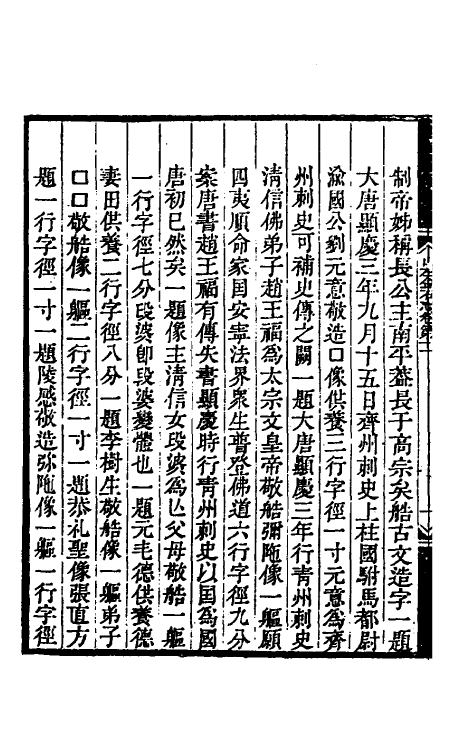 制帝姊稱長公主南平葢長于高宗矣艁古文造字一題
大唐顯慶三年九月十五日齊州刺史上柱國駙馬都尉
渝國公劉元意敬造口像供養三行字徑一寸元意爲齊
州刺史可補史傳之闕一題大唐顯慶三年行青州刺史
清信佛弟子趙王福爲太宗文皇帝敬艁彌陁像一軀願
四夷順命家国安寧法界衆生普登佛道六行字徑九分
案唐書趙王福有傳失書顯慶時行青州刺史以国爲國
唐初已然矣一題像主清信女段婆爲亾父母敬艁一軀
一行字徑七分段婆卽段婆變體也一題元毛德供養德
妻田供養二行字徑八分一題李樹生敬艁像一軀弟子
口口敬艁像一軀二行字徑一寸一題恭礼聖像張直方
題一行字徑一寸一題陵感敬造弥陁像一軀一行字徑